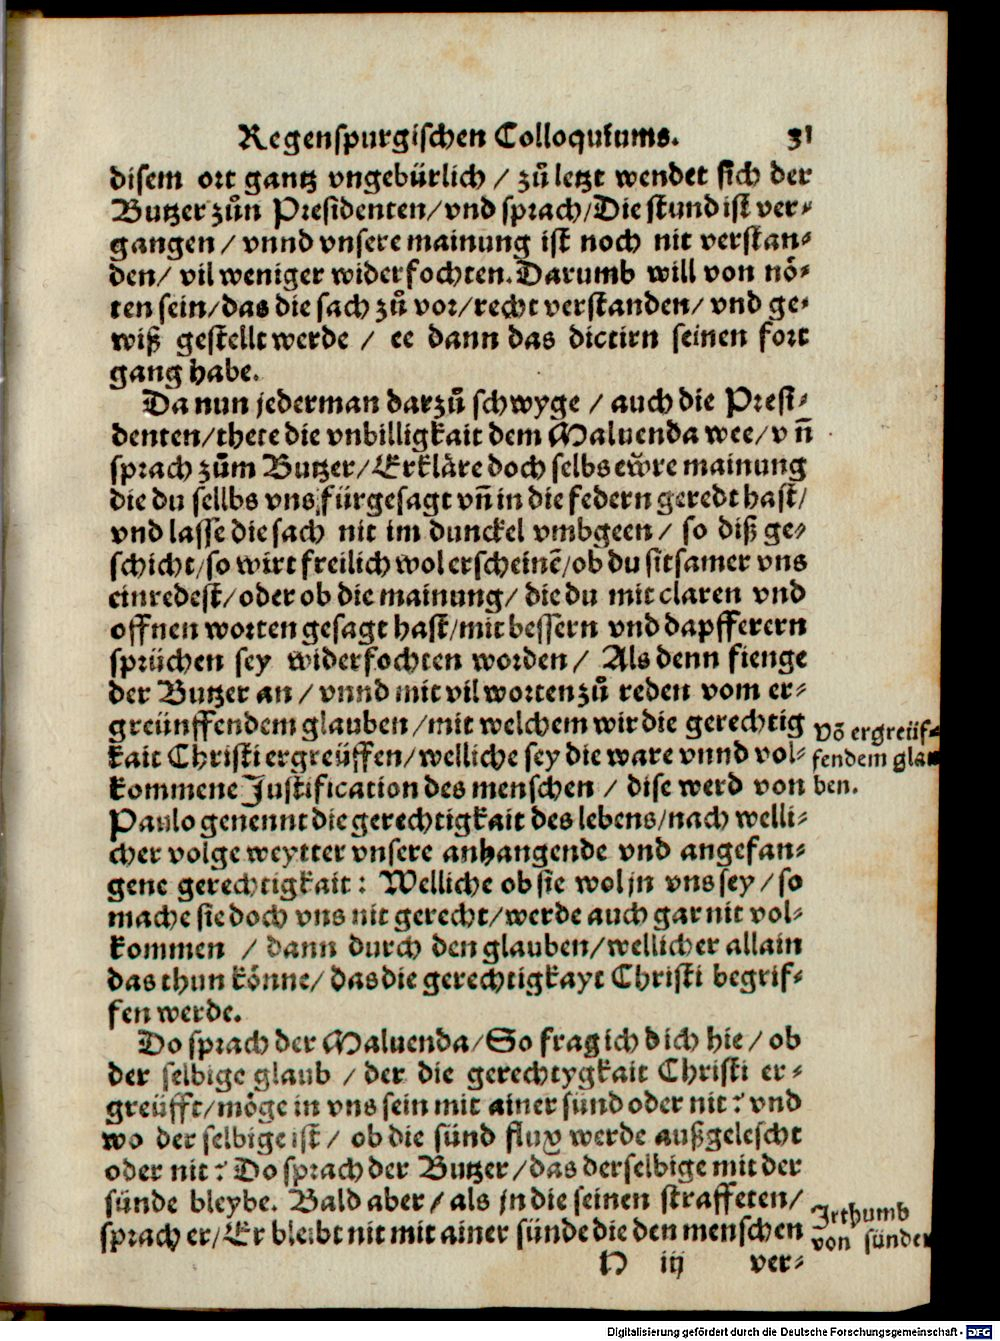 Regenspurgischen Colloquiums. 31
disem ort gantz vngebürlich / zů letzt wendet sich der
Butzer zůn Presidenten/vnd sprach/Die stund ist ver-
gangen / vnnd vnsere mainung ist noch nit verstan-
den/ vil weniger widerfochten. Darumb will von nö-
ten sein/das die sach zů vor/recht verstanden/ vnd ge-
wiß gestellt werde / ee dann das dictirn seinen fort
gang habe.
Da nun jederman darzů schwyge / auch die Presi-
denten/thete die vnbilligkait dem Maluenda wee/vn̄
sprach zům Butzer/Erkläre doch selbs ewre mainung
die du sellbs vns fürgesagt vn̄ in die federn geredt hast/
vnd lasse die sach nit im dunckel vmbgeen / so diß ge-
schicht/so wirt freilich wol erscheinē/ob du sitsamer vns
einredest/oder ob die mainung/ die du mit claren vnd
offnen worten gesagt hast/mit bessern vnd dapfferern
sprüchen sey widerfochten worden / Als denn fienge
der Butzer an / vnnd mit vil worten zů reden vom er-
greünffendem glauben/mit welchem wir die gerechtig
kait Christi ergreüffen/welliche sey die ware vnnd vol-
kommene Justification des menschen / dise werd von
Paulo genennt die gerechtigkait des lebens/nach welli-
cher volge weytter vnsere anhangende vnd angefan-
gene gerechtigkait: Welliche ob sie wol jn vns sey / so
mache sie doch vns nit gerecht/werde auch gar nit vol-
kommen / dann durch den glauben/wellicher allain
das thun könne/ das die gerechtigkayt Christi begrif-
fen werde.
Vō ergreüf-
fendem glau
ben.
Do sprach der Maluenda/So frag ich dich hie / ob
der selbige glaub / der die gerechtygkait Christi er-
greüfft/möge in vns sein mit ainer sünd oder nit? vnd
wo der selbige ist / ob die sünd flux werde außgelescht
oder nit? Do sprach der Butzer/das derselbige mit der
sünde bleybe. Bald aber / als jn die seinen straffeten/
sprach er/Er bleibt nit mit ainer sünde die den menschen
Irthumb
von sünden
H iij ver-
Digitalisierung gefördert durch die Deutsche Forschungsgemeinschaft - DFG